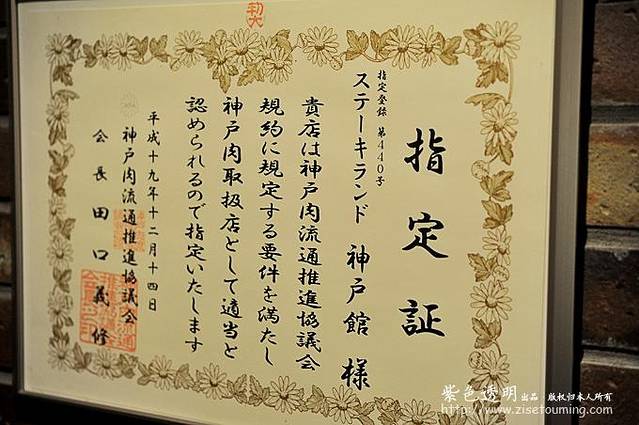 指定証
指定登録 第440号
ステーキランド 神戸館 様
貴店は神戸肉流通推進協議会
規約に規定する要件を満たし
神戸肉取扱店として適当と
認められるので指定いたします
平成十九年十二月十四日
神戸肉流通推進協議会
会長 田口義修
紫色透明 出品 版权归本人所有
http://www.zisetouming.com/